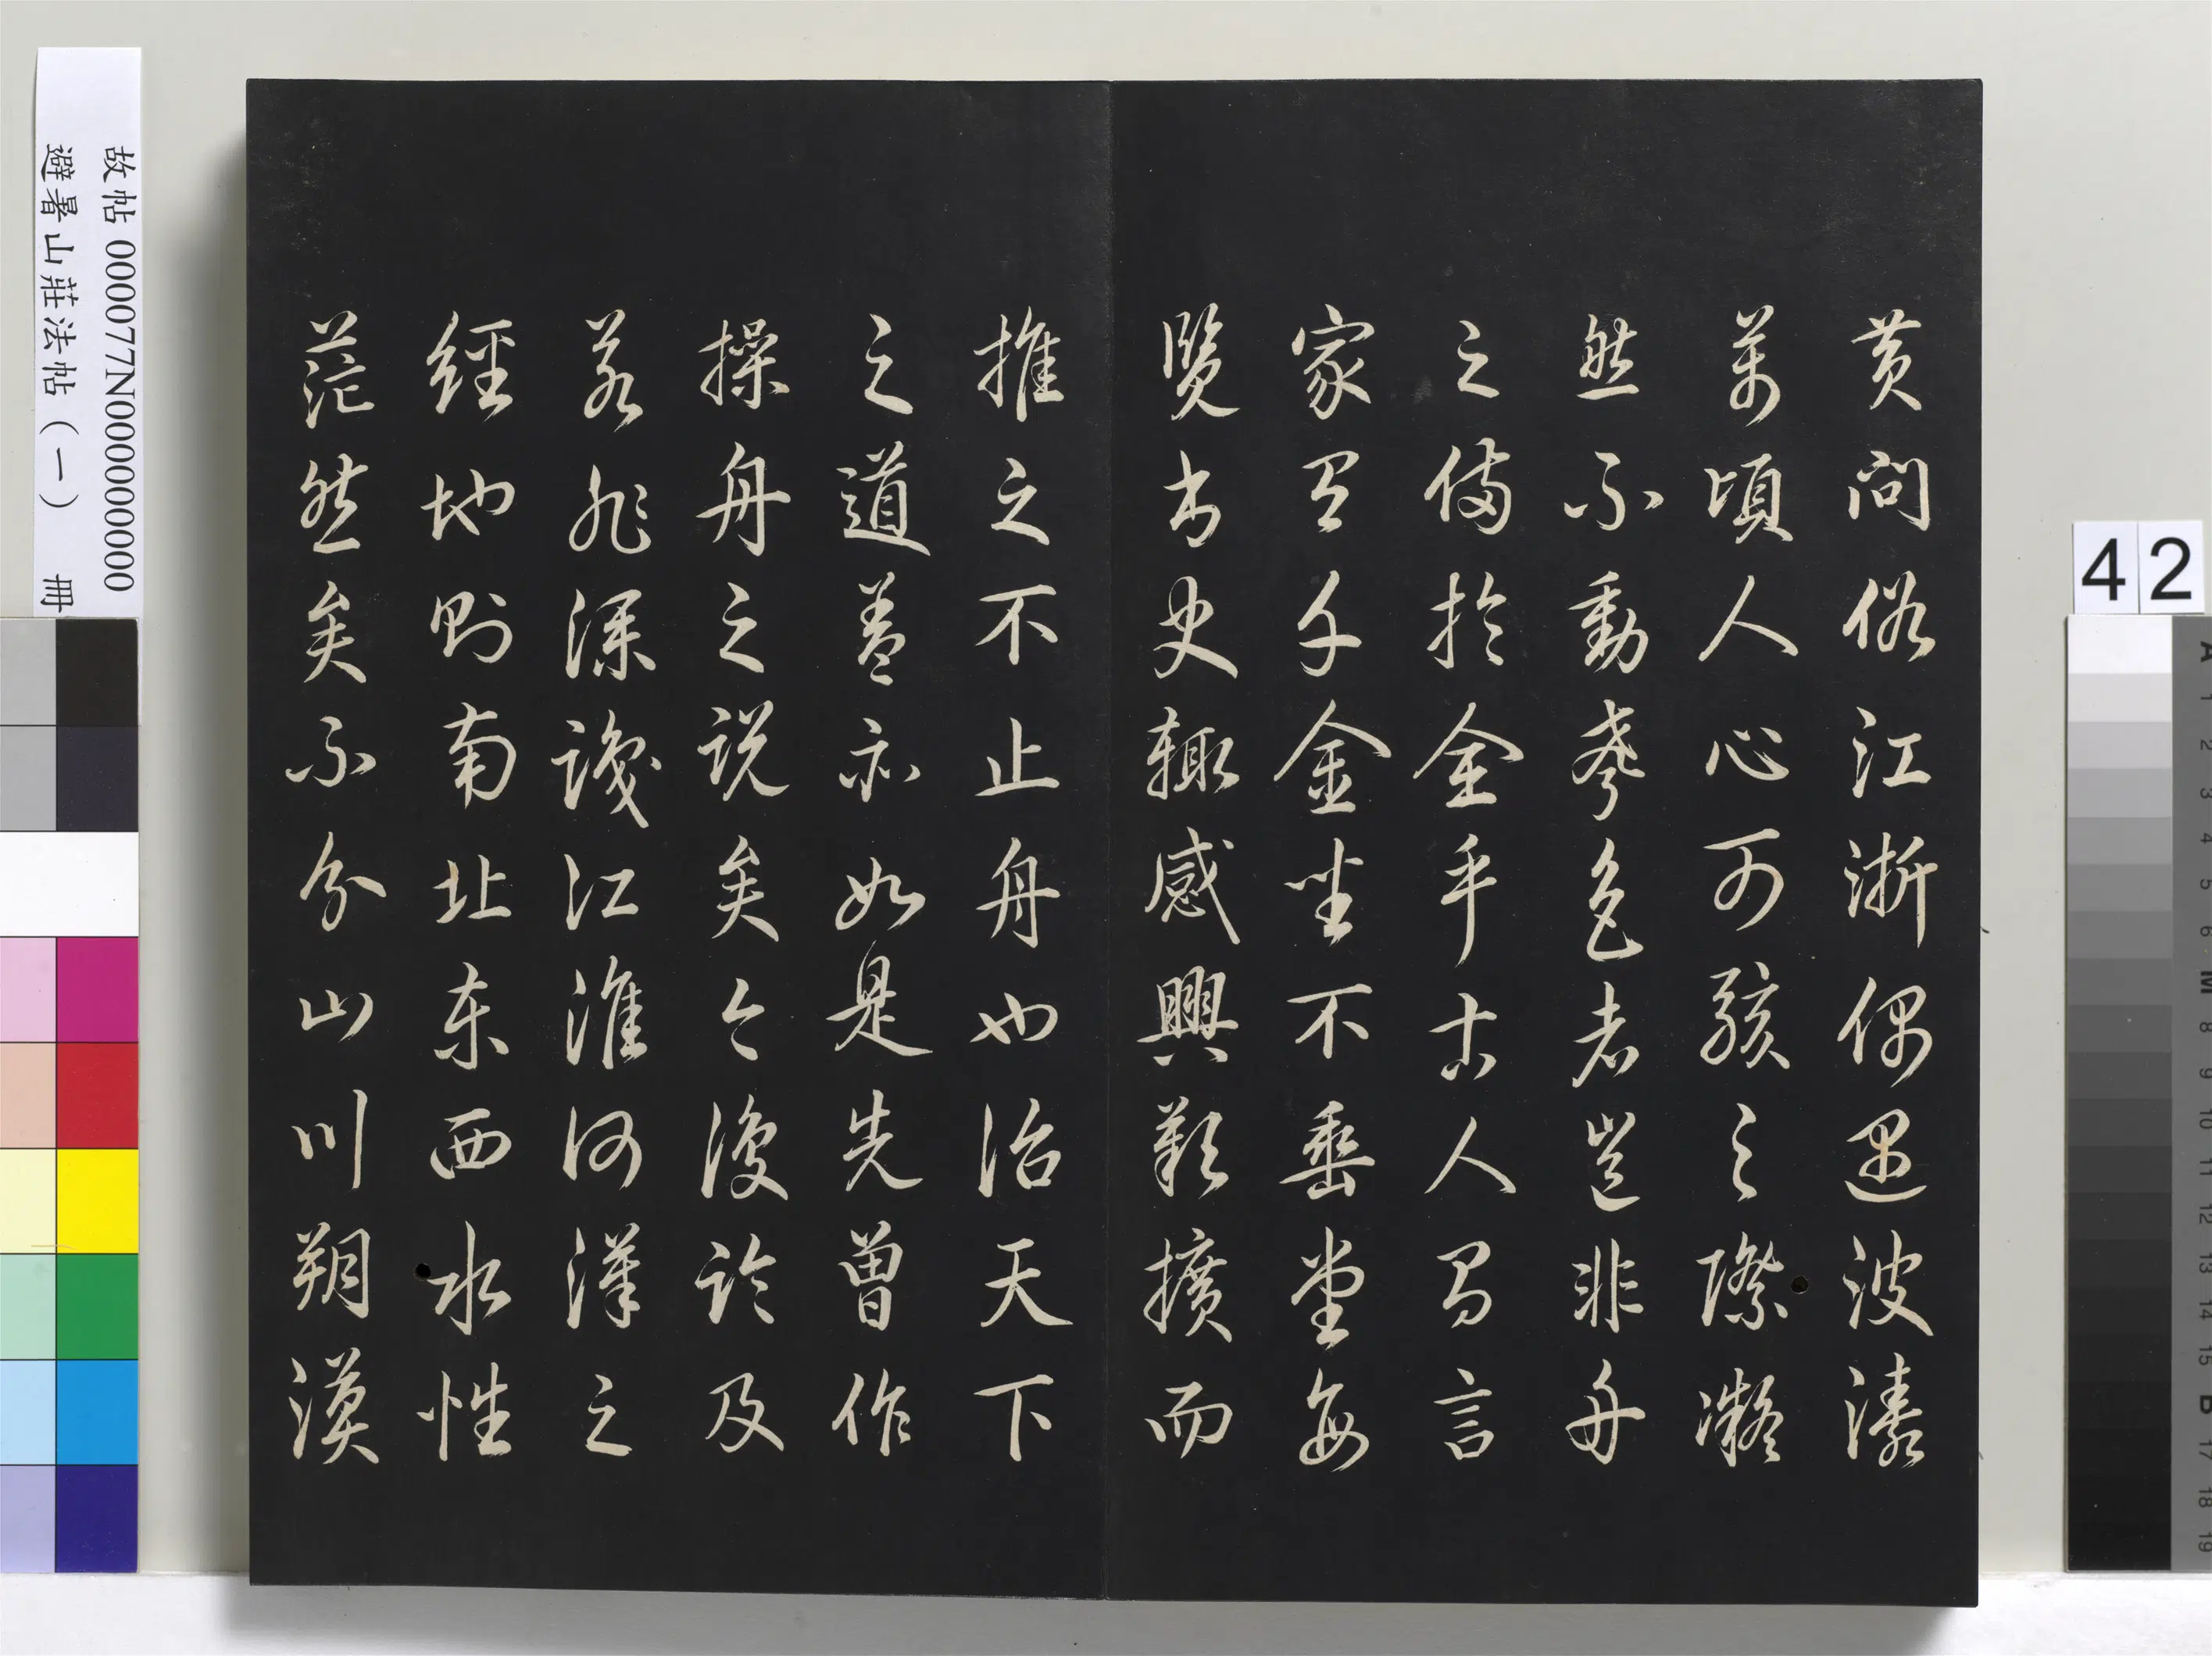 黄問俗江浙偶遇波濤
萬頃人心可駭之際凝
然不動聲色者豈非舟
之備於全乎古人有言
家有千金坐不垂堂每
覽書史輒感興歎擴而
推之不止舟也治天下
之道蓋亦如是先曾作
操舟之說矣今復論及
若非深識江淮河漢之
經地則南北東西水性
茫然矣不分山川朔漠
故帖 000077N000000000
避暑山莊法帖（一） 冊
42
A 1 2 3 4 5 6 M 8 9 10 11 12 13 14 15 B 17 18 19